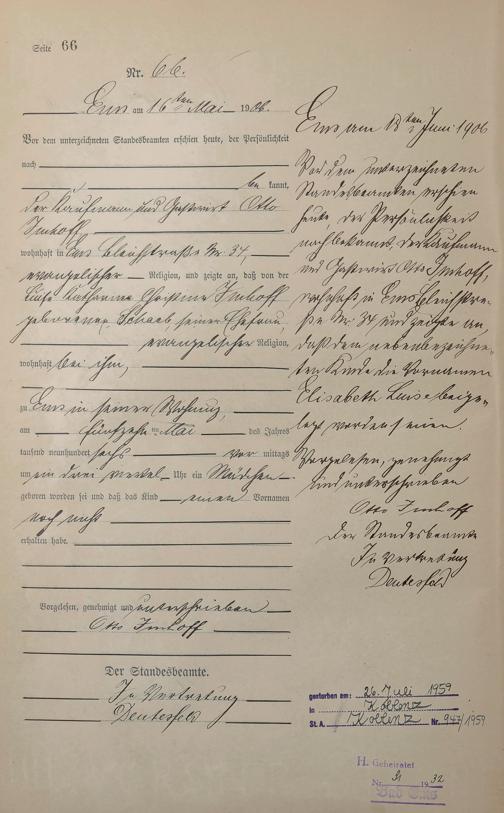 Seite 66
Nr. 66.
Ems am 16ten Mai 1906.
Vor dem unterzeichneten Standesbeamten erschien heute, der Persönlichkeit
nach
be kannt,
der Kaufmann und Gastwirt Otto
Imhoff,
wohnhaft in Ems Bleichstraße Nr. 34,
evangelischer Religion, und zeigte an, daß von der
Katharine Christine Imhoff
geborenen Schaab, seiner Ehefrau,
evangelischer Religion,
wohnhaft bei ihm,
zu Ems in seiner Wohnung,
am fünfzehnten Mai des Jahres
tausend neunhundert sechs vor mittags
um ein drei viertel Uhr ein Mädchen
geboren worden sei und daß das Kind einen Vornamen
noch nicht
erhalten habe.
Vorgelesen, genehmigt und unterschrieben
Otto Imhoff
Der Standesbeamte.
In Vertretung
Deutesfeld
Ems am 18ten Juni 1906
Vor dem unterzeichneten
Standesbeamten erschien
heute, der Persönlichkeit
nach bekannt, der Kaufmann
und Gastwirt Otto Imhoff,
wohnhaft in Ems Bleichstra-
ße Nr. 34 und zeigte an,
daß dem nebenbezeichne-
ten Kinde die Vornamen
Elisabeth Luise beige-
legt worden seien.
Vorgelesen, genehmigt
und unterschrieben
Otto Imhoff
Der Standesbeamte
In Vertretung
Deutesfeld
gestorben am: 26. Juli 1959
in Koblenz
St. A. Koblenz Nr. 947/1959
H. Geheiratet
Nr. 31 1932
Bad Ems